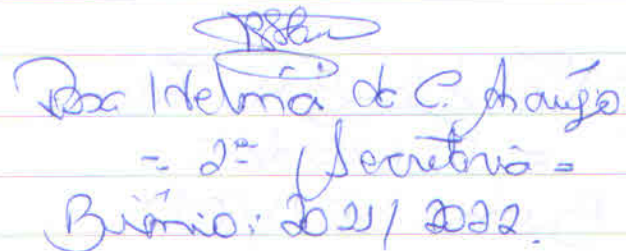 Rosa Helmia de C. Araújo
= 2ª Secretária =
Biênio: 2021/2022